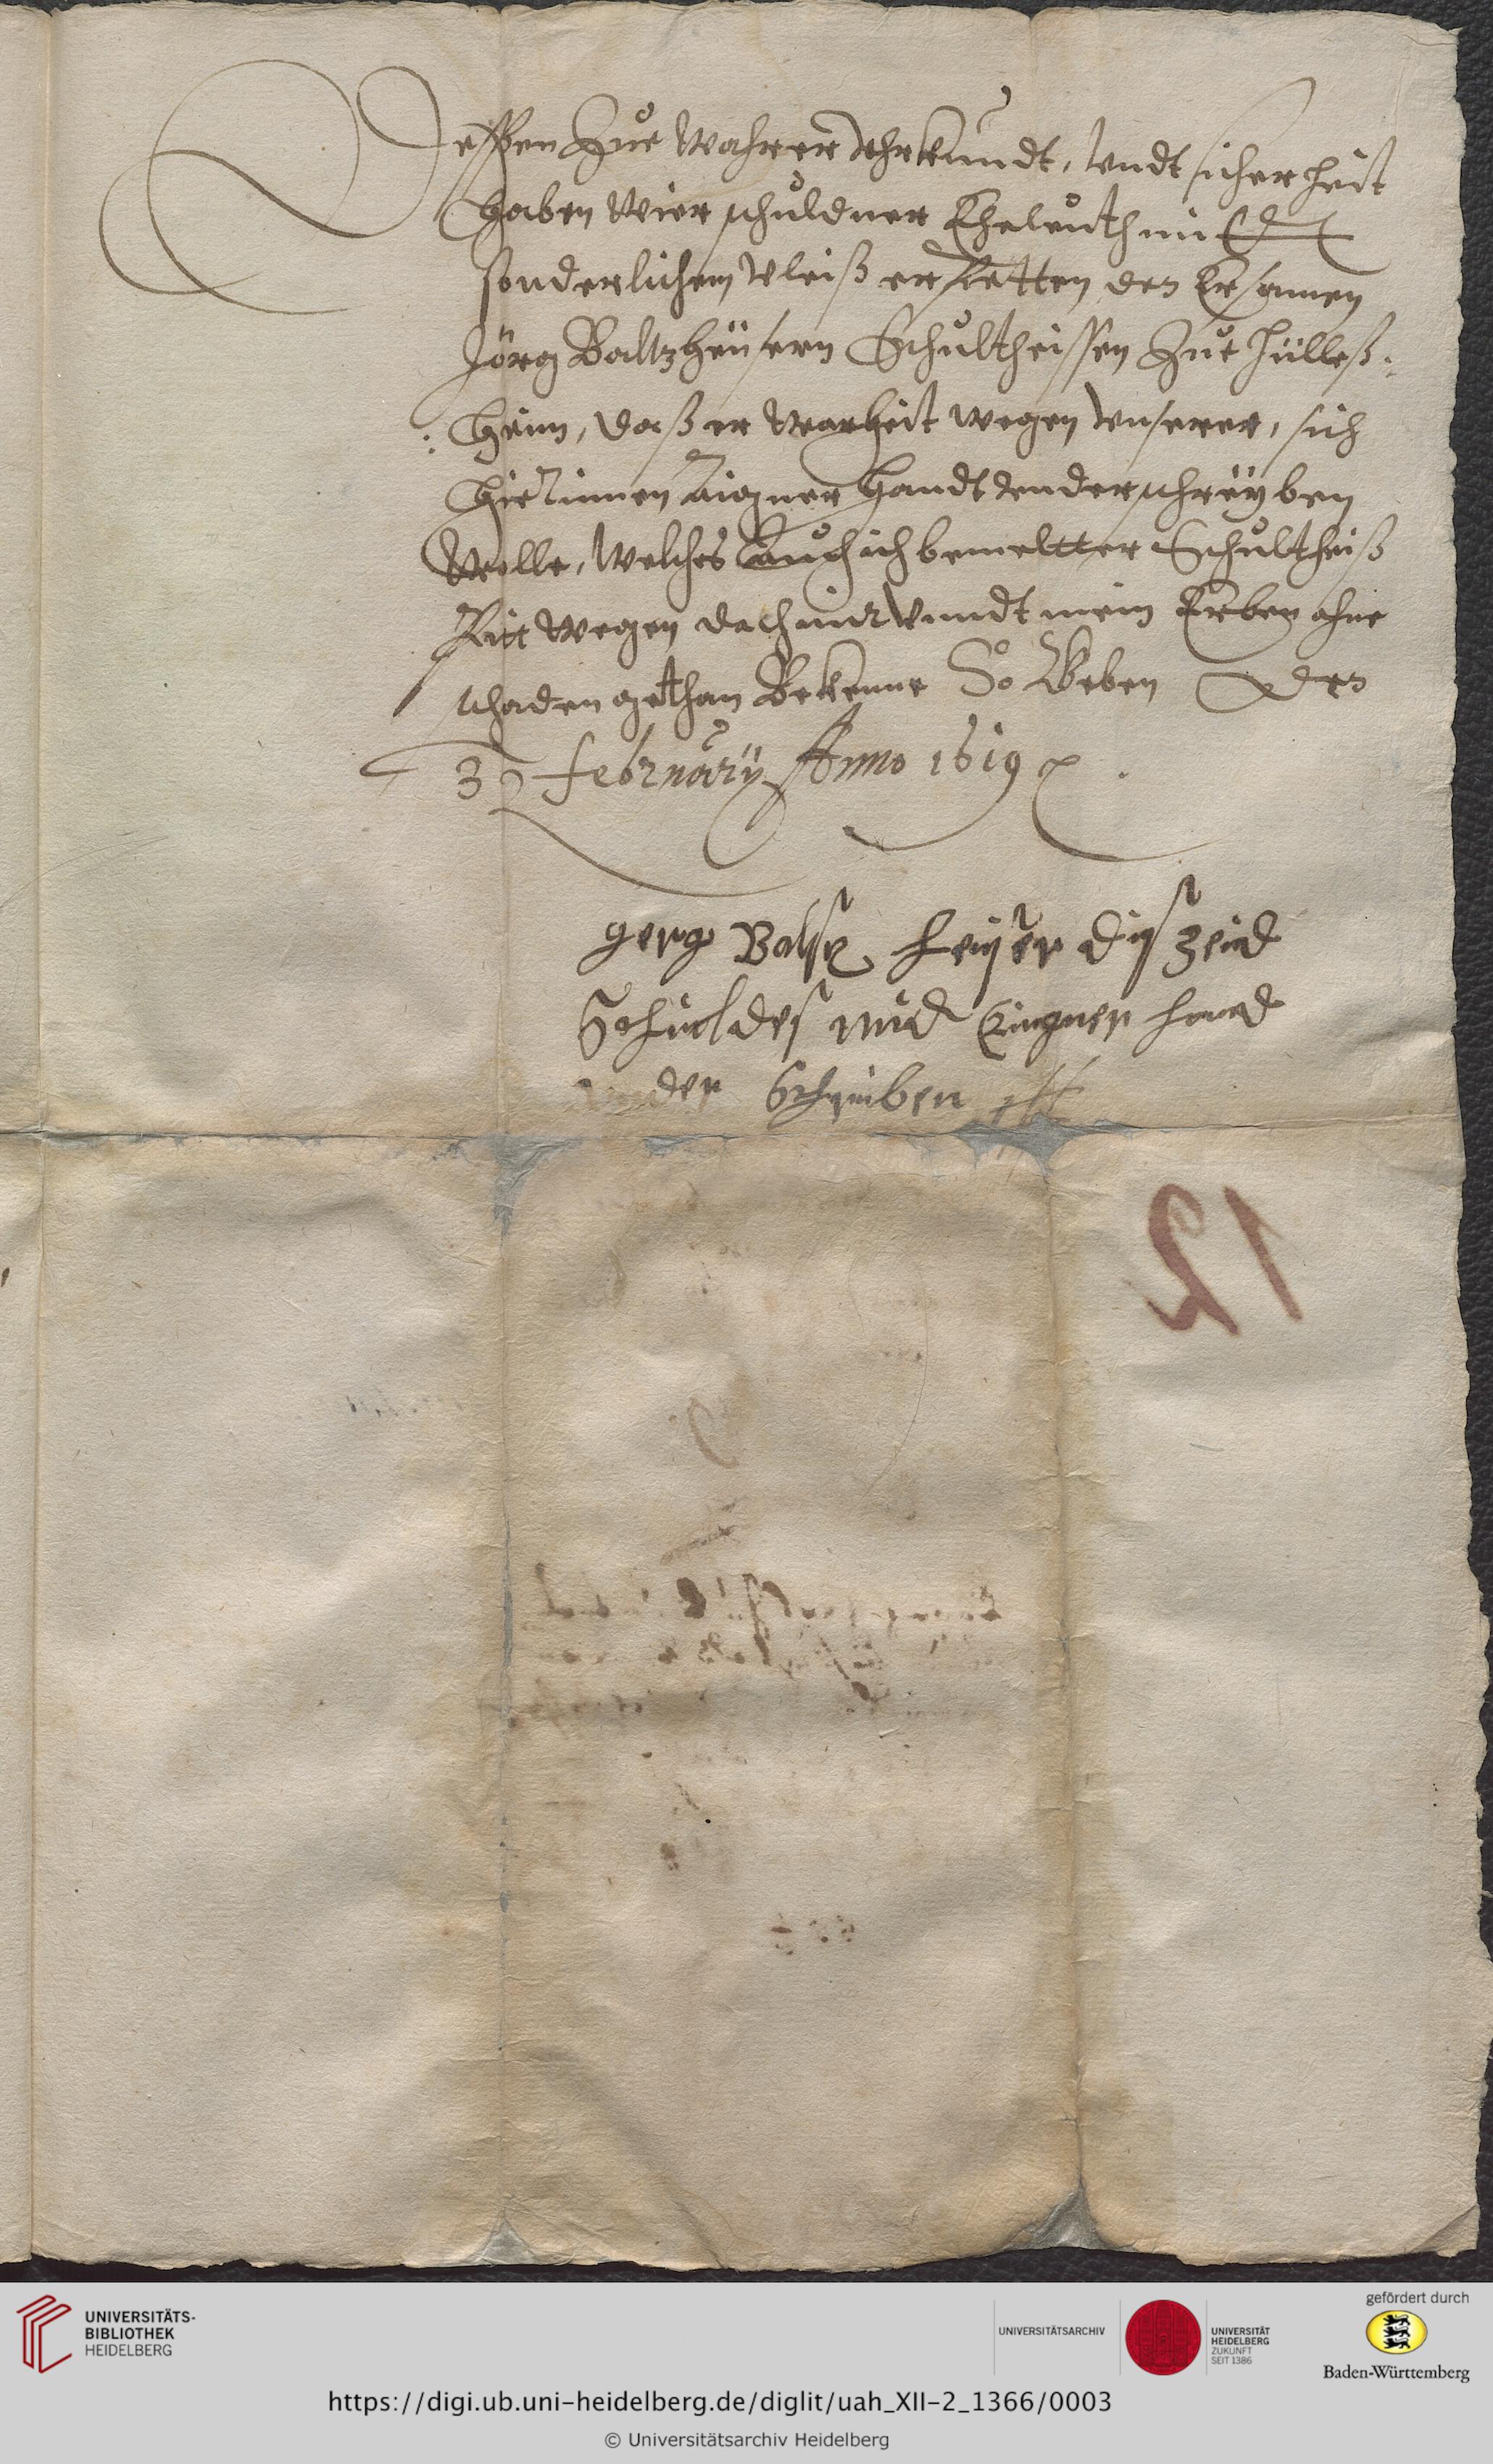 Dessen Zue Wahrer Uhrkundt, Vndt sicherheit
haben Wier schuldner Eheleuth mit
sonderlichem Vleiß erbetten den Ersamen
Jörg Baltzheüsern Schultheissen Zue Hülleß:
:heim, daß er Warheit wegen Vnserer, sich
hierinnen Aigner handt Vnderschreyben
Wolle, Welches auch ich bemeltter Schultheiß
Pitt Wegen doch mir Vnndt mein Erben ohne
schaden gethan Bekenne So Geben den
3 february Anno 1619
gerg Balsz heiser dis zeid
Schuldes mid Eingner hand
vnder Schreiben
12
UNIVERSITÄTS-
BIBLIOTHEK
HEIDELBERG
UNIVERSITÄTSARCHIV
UNIVERSITÄT
HEIDELBERG
ZUKUNFT
SEIT 1386
gefördert durch
Baden-Württemberg
https://digi.ub.uni-heidelberg.de/diglit/uah_XII-2_1366/0003
© Universitätsarchiv Heidelberg